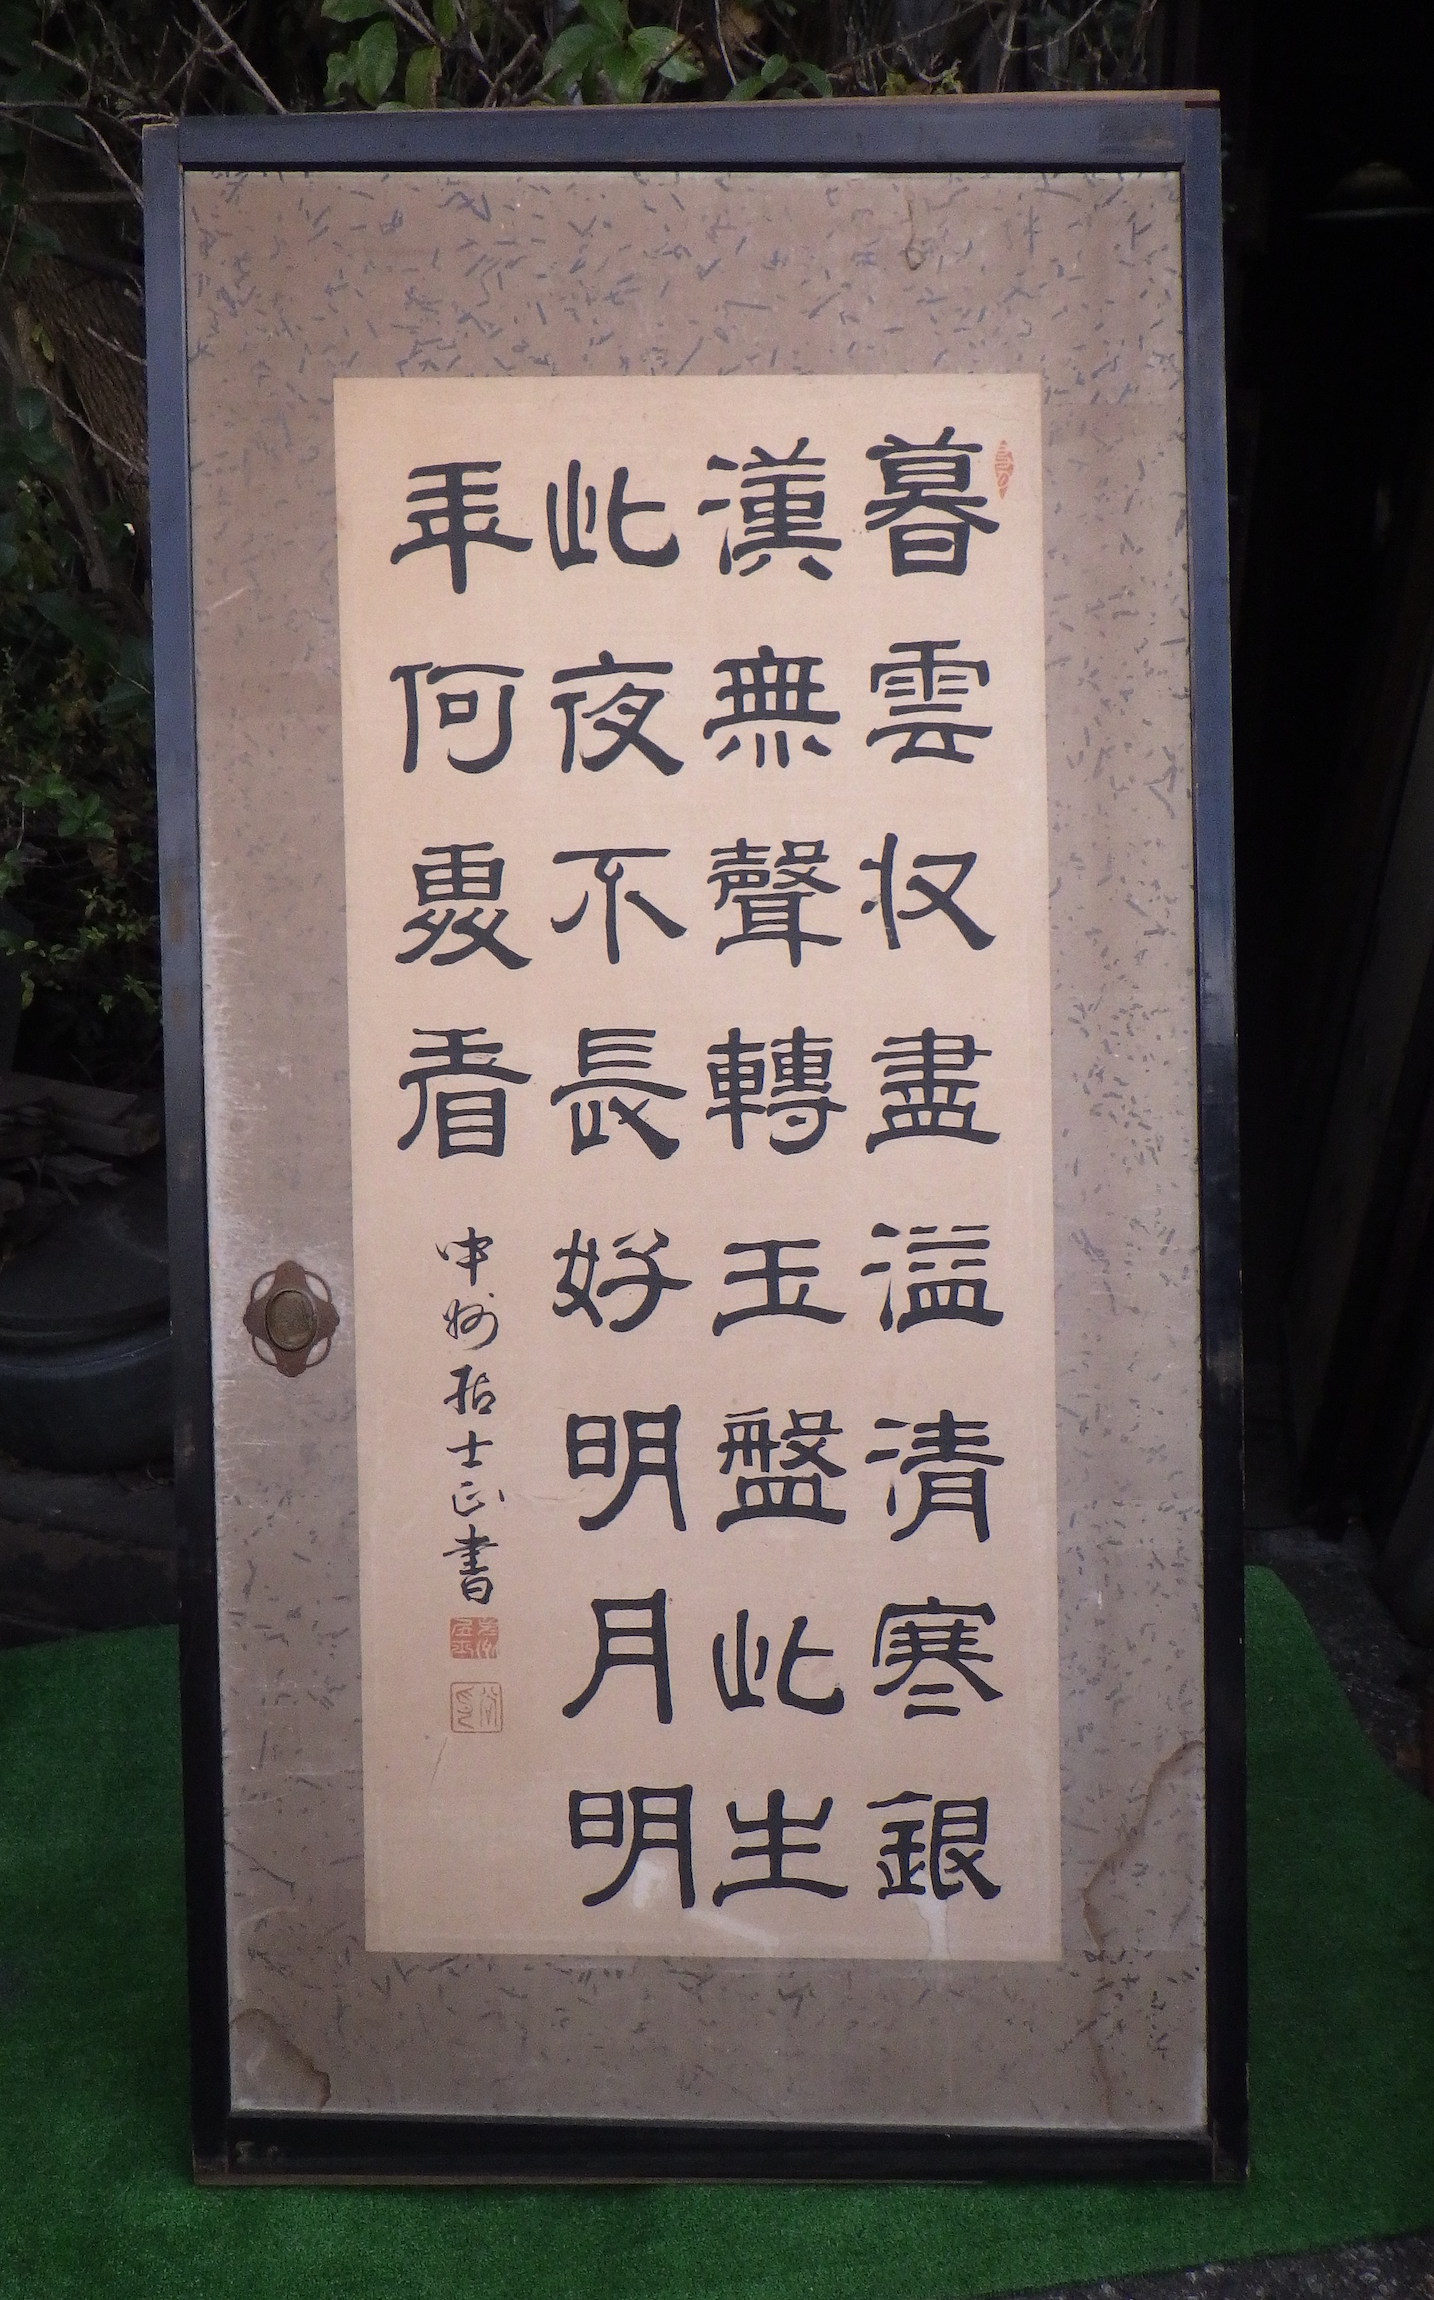 暮雲収盡溢清寒銀
漢無聲轉玉盤此生
此夜不長好明月明
年何處看
中州居士正書